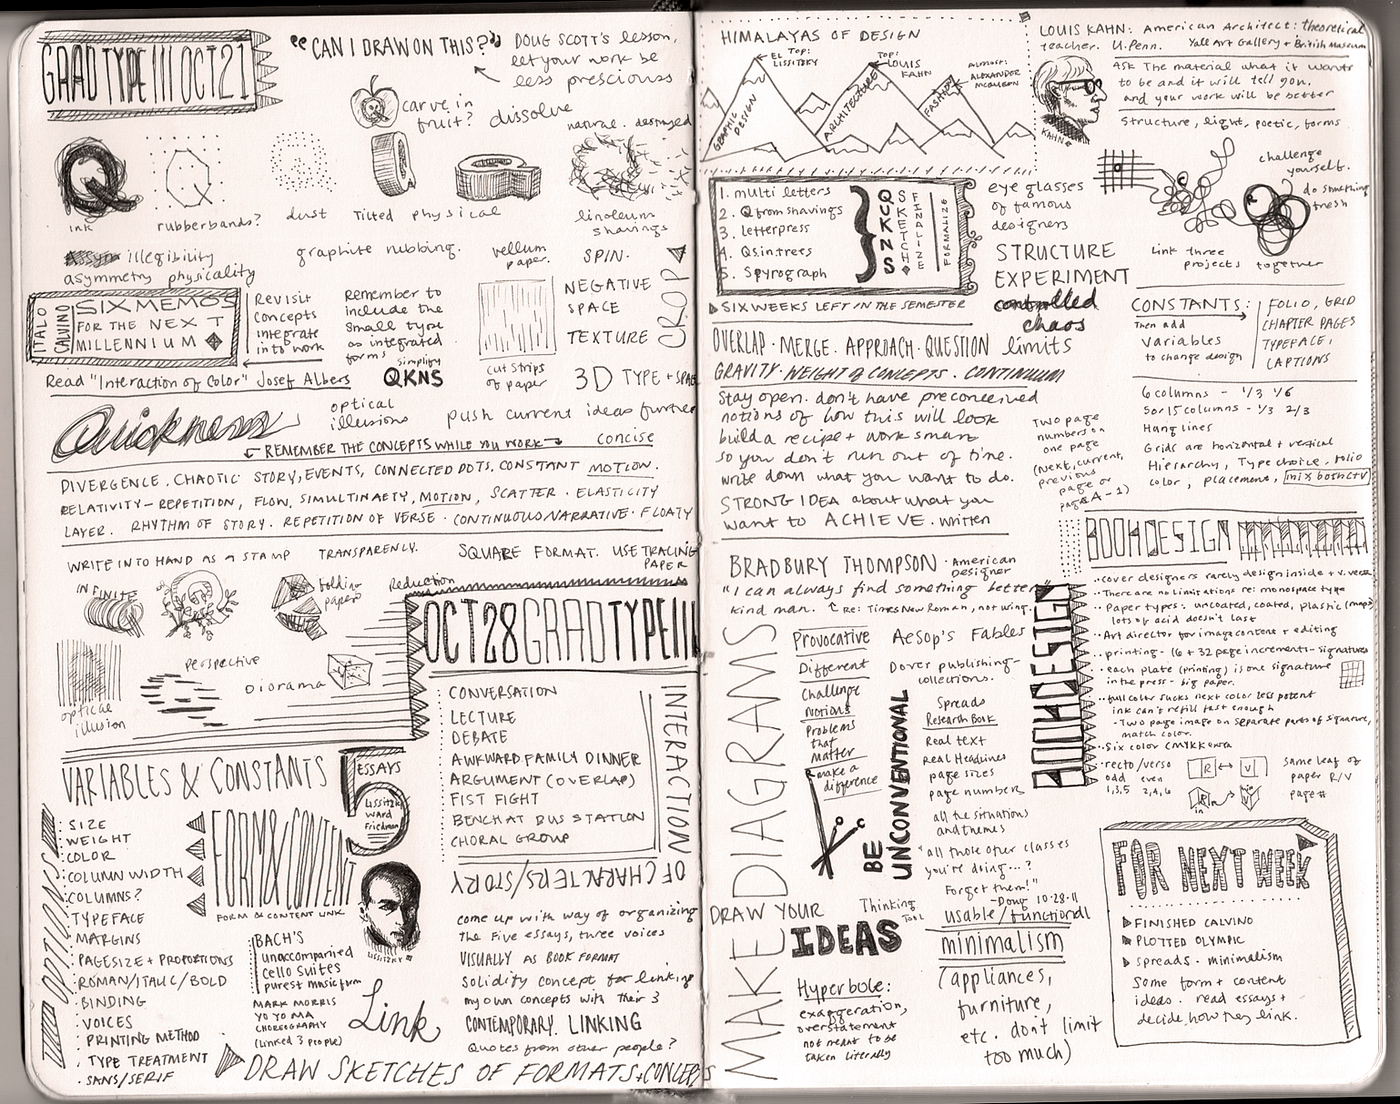 GRAD TYPE III OCT 21
"CAN I DRAW ON THIS?"
DOUG SCOTT'S lesson,
let your work be
less prescious
carve in
fruit?
dissolve
natural. destroyed
ink
rubberbands?
dust
Tilted physical
linoleum
shavings
illegibility
asymmetry physicality
graphite rubbing.
vellum
paper.
SPIN.
CROP
ITALO
CALVINO
SIX MEMOS
FOR THE NEXT
MILLENNIUM
Revisit
concepts
integrate
into work
Remember to
include the
small type
as integrated
forms
simplify
QKNS
cut strips
of paper
NEGATIVE
SPACE
TEXTURE
3D TYPE + SPACE
Read "Interaction of Color" Josef Albers
Quickness
optical
illusions
push current ideas further
REMEMBER THE CONCEPTS WHILE YOU WORK
concise
DIVERGENCE. CHAOTIC STORY, EVENTS, CONNECTED DOTS. CONSTANT MOTION.
RELATIVITY-REPETITION, FLOW, SIMULTINAETY, MOTION, SCATTER · ELASTICITY
LAYER. RHYTHM OF STORY. REPETITION OF VERSE · CONTINUOUS NARRATIVE · FLOATY
WRITE INTO HAND AS A STAMP TRANSPARENCY.
SQUARE FORMAT. USE TRACING
PAPER
INFINITE
folding
paper
Reduction
perspective
Diorama
optical
illusion
OCT 28 GRAD TYPE III
CONVERSATION
LECTURE
DEBATE
AWKWARD FAMILY DINNER
ARGUMENT (OVERLAP)
FIST FIGHT
BENCHAT BUS STATION
CHORAL GROUP
INTERACTION
OF CHARACTERS/STORY
VARIABLES & CONSTANTS
5
ESSAYS
Lissitzky
Ward
Friedman
OPTIONS
SIZE
WEIGHT
COLOR
COLUMN WIDTH
COLUMNS?
TYPEFACE
MARGINS
PAGESIZE + PROPORTIONS
ROMAN/ITALIC/BOLD
BINDING
VOICES
PRINTING METHOD
TYPE TREATMENT
SANS/SERIF
FORM & CONTENT
FORM & CONTENT LINK
LISSITZKY
BACH'S
unaccompanied
cello suites
purest music form
MARK MORRIS
YO YO MA
CHOREOGRAPHY
(linked 3 people)
Link
come up with way of organizing
The Five essays, three voices
VISUALLY AS BOOK FORMAT
Solidify concept for linking
my own concepts with their 3
CONTEMPORARY. LINKING
Quotes from other people?
DRAW SKETCHES OF FORMATS + CONCEPTS
HIMALAYAS OF DESIGN
Top:
EL LISSITZKY
Top:
LOUIS
KAHN
ALMOST:
ALEXANDER
MCQUEEN
GRAPHIC
DESIGN
ARCHITECTURE
FASHION
LOUIS KAHN: American Architect: theoretical
teacher. U.Penn. Yale Art Gallery + British Museum
ASK The material what it wants
to be and it will tell you.
and your work will be better
structure, light, poetic, forms
KAHN
1. multi letters
2. Q from shavings
3. letterpress
4. Qs in trees
5. Spyrograph
QUKNS
SKETCH
FINALIZE
FORMALIZE
SIX WEEKS LEFT IN THE SEMESTER
eye glasses
of famous
designers
STRUCTURE
EXPERIMENT
controlled
chaos
challenge
yourself.
do something
fresh
Link three
projects together
CONSTANTS:
Then add
variables
to change design
FOLIO, GRID
CHAPTER PAGES
TYPEFACE,
CAPTIONS
OVERLAP · MERGE. APPROACH · QUESTION limits
GRAVITY · WEIGHT of CONCEPTS. CONTINUUM
Stay open. don't have preconceived
notions of how this will look
build a recipe + work smart
so you don't run out of time.
write down what you want to do.
STRONG IDEA about what you
want to ACHIEVE. written
TWO page
numbers on
one page
(Next, current,
previous
page or
page A-1)
6 columns - 1/3 1/6
5 or 15 columns - 1/3 2/3
Hang lines
Grids are horizontal + vertical
Hierarchy, Type choice, folio
color, placement, mix both CTV
BRADBURY THOMPSON · American
Designer
"I can always find something better"
kind man. Re: Times New Roman, not wing.
MAKE DIAGRAMS
Provocative
Different
Challenge
Notions
Problems
that
matter
make a
difference
Aesop's Fables
Dover publishing-
collections.
BE
UNCONVENTIONAL
Spreads
Research Book
Real text
real Headlines
page sizes
page numbers
all the situations
and themes
"all those other classes
you're doing...?
Forget them!"
-Doug 10·28·11
BOOK DESIGN
BOOK DESIGN
cover designers rarely design inside + v. versa
There are no limitations re: monospace type
Paper types: uncoated, coated, plastic (maps)
lots of acid doesn't last
Art director for image content + editing
printing - 16 + 32 page increments - signatures
each plate (printing) is one signature
in the press - big paper.
full color sucks next color less potent
ink can't refill fast enough
-Two page image on separate parts of signature,
match color.
Six color CMYK
recto/verso
odd even
1,3,5 2,4,6
R V
same leaf of
paper R/V
page #
DRAW YOUR
IDEAS
Thinking
Tool
usable/functional
minimalism
(appliances,
furniture,
etc. dont limit
too much)
Hyperbole:
exaggeration,
overstatement
not meant to be
taken literally
FOR NEXT WEEK
FINISHED CALVINO
PLOTTED OLYMPIC
spreads · minimalism
Some form + content
ideas. read essays +
decide how they link.